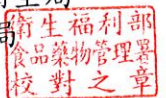 衛生福利部
食品藥物管理署
校對之章
局